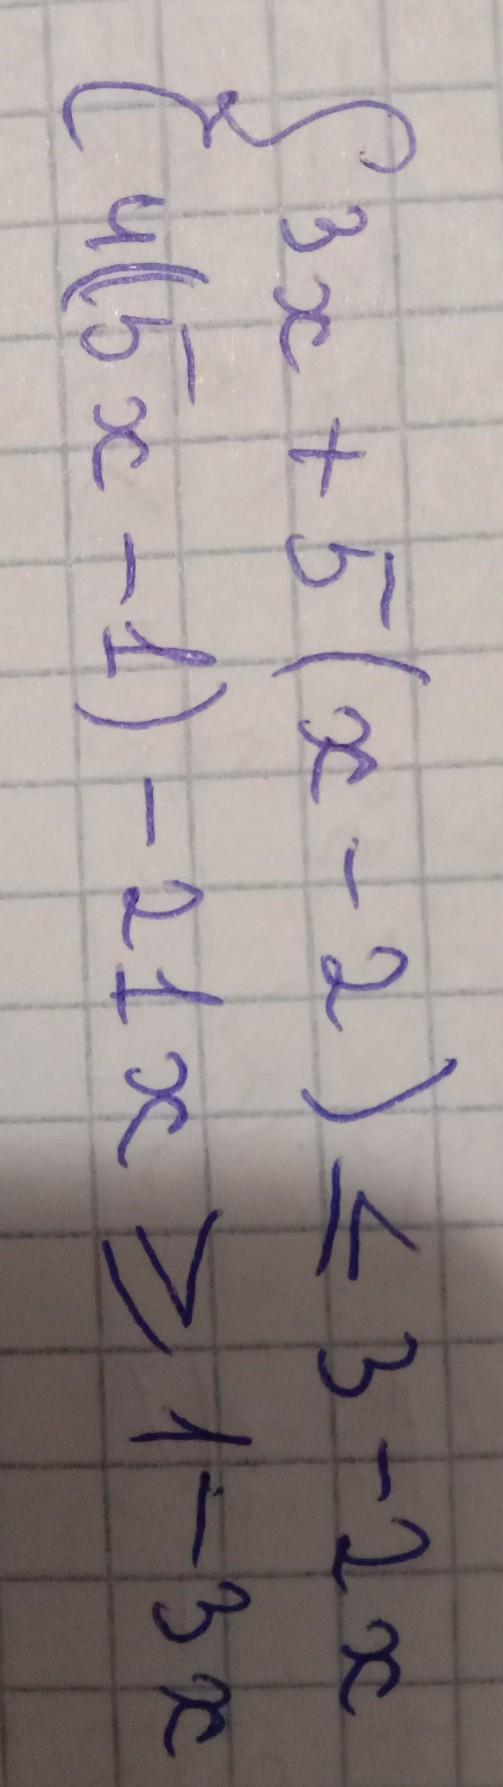 { 3x + 5(x - 2) ≤ 3 - 2x
4(5x - 1) - 21x ≥ 1 - 3x